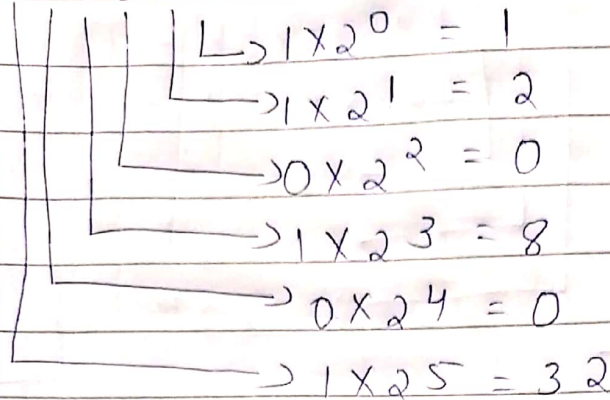 1 × 2⁰ = 1
1 × 2¹ = 2
0 × 2² = 0
1 × 2³ = 8
0 × 2⁴ = 0
1 × 2⁵ = 32